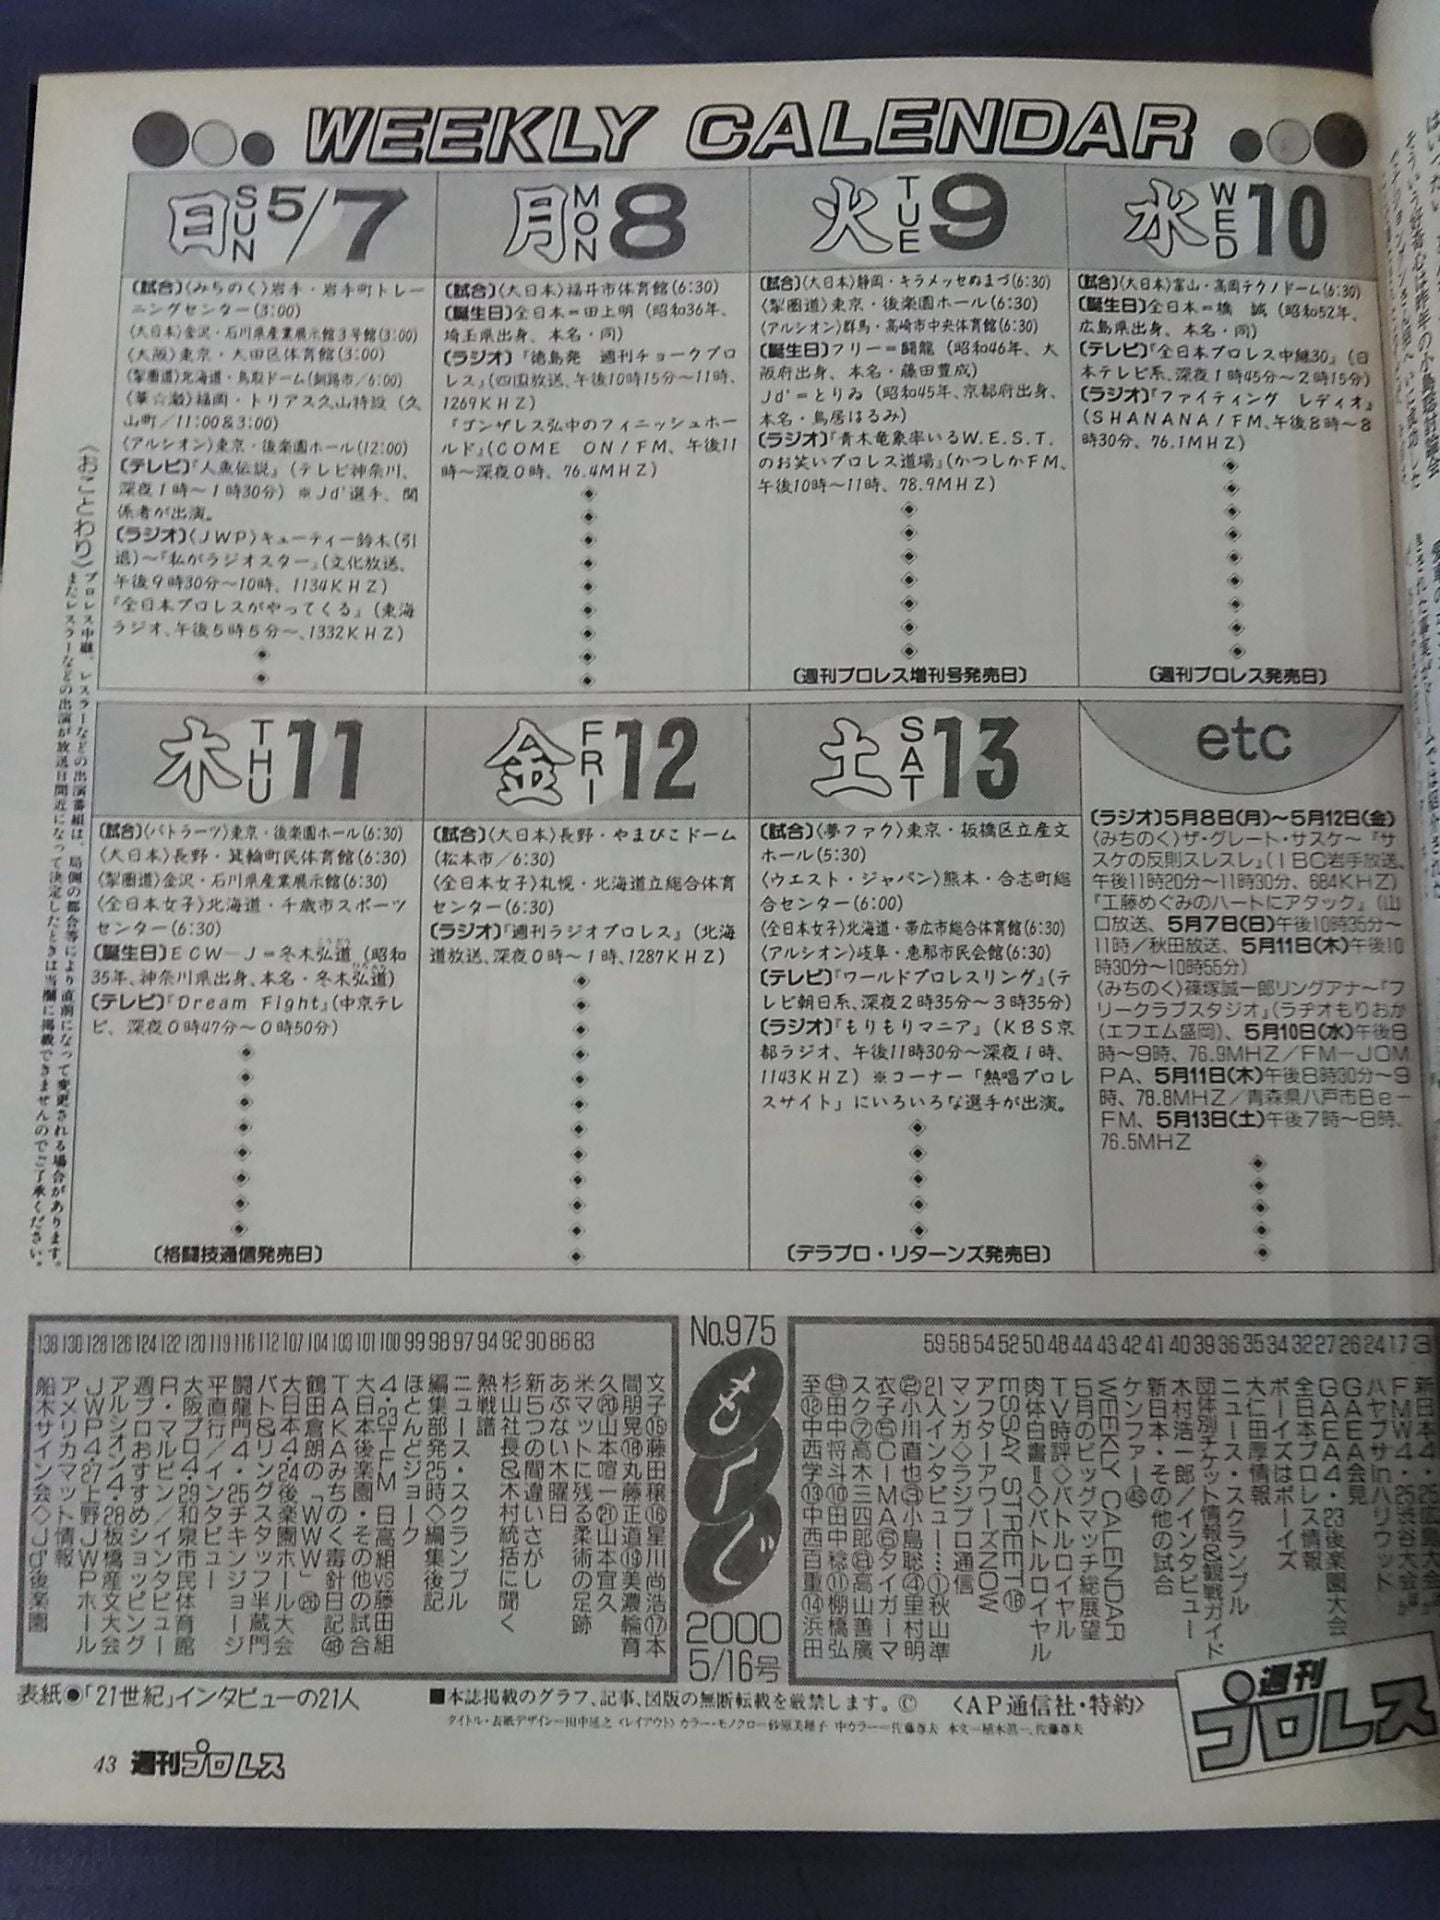 WEEKLY CALENDAR
日 SUN 5/7
〔試合〕〈みちのく〉岩手・岩手町トレー
ニングセンター(3:00)
〈大日本〉金沢・石川県産業展示館3号館(3:00)
〈大阪〉東京・大田区体育館(3:00)
〈掣圏道〉北海道・鳥取ドーム(釧路市/6:00)
〈華☆激〉福岡・トリアス久山特設(久
山町/11:00&3:00)
〈アルシオン〉東京・後楽園ホール(12:00)
〔テレビ〕『人魚伝説』(テレビ神奈川、
深夜1時~1時30分)※Jd'選手、関
係者が出演。
〔ラジオ〕〈JWP〉キューティー鈴木(引
退)~『私がラジオスター』(文化放送、
午後9時30分~10時、1134KHZ)
『全日本プロレスがやってくる』(東海
ラジオ、午後5時5分~、1332KHZ)
月 MON 8
〔試合〕〈大日本〉福井市体育館(6:30)
〔誕生日〕全日本=田上明(昭和36年、
埼玉県出身、本名・同)
〔ラジオ〕『徳島発 週刊チョークプロ
レス』(四国放送、午後10時15分~11時、
1269KHZ)
『ゴンザレス弘中のフィニッシュホー
ルド』(COME ON/FM、午後11
時~深夜0時、76.4MHZ)
火 TUE 9
〔試合〕〈大日本〉静岡・キラメッセぬまづ(6:30)
〈掣圏道〉東京・後楽園ホール(6:30)
〈アルシオン〉群馬・高崎市中央体育館(6:30)
〔誕生日〕フリー=闘龍(昭和46年、大
阪府出身、本名・藤田豊成)
Jd'=とりゐ(昭和45年、京都府出身、
本名・鳥居はるみ)
〔ラジオ〕『青木竜象率いるW.E.S.T.
のお笑いプロレス道場』(かつしかFM、
午後10時~11時、78.9MHZ)
〔週刊プロレス増刊号発売日〕
水 WED 10
〔試合〕〈大日本〉富山・高岡テクノドーム(6:30)
〔誕生日〕全日本=橋 誠(昭和52年、
広島県出身、本名・同)
〔テレビ〕『全日本プロレス中継30』(日
本テレビ系、深夜1時45分~2時15分)
〔ラジオ〕『ファイティング レディオ』
(SHANANA/FM、午後8時~8
時30分、76.1MHZ)
〔週刊プロレス発売日〕
木 THU 11
〔試合〕〈バトラーツ〉東京・後楽園ホール(6:30)
〈大日本〉長野・箕輪町民体育館(6:30)
〈掣圏道〉金沢・石川県産業展示館(6:30)
〈全日本女子〉北海道・千歳市スポーツ
センター(6:30)
〔誕生日〕ECW-J=冬木弘道(昭和
35年、神奈川県出身、本名・冬木弘道)
〔テレビ〕『Dream Fight』(中京テレ
ビ、深夜0時47分~0時50分)
〔格闘技通信発売日〕
金 FRI 12
〔試合〕〈大日本〉長野・やまびこドーム
(松本市/6:30)
〈全日本女子〉札幌・北海道立総合体育
センター(6:30)
〔ラジオ〕『週刊ラジオプロレス』(北海
道放送、深夜0時~1時、1287KHZ)
土 SAT 13
〔試合〕〈夢ファク〉東京・板橋区立産文
ホール(5:30)
〈ウエスト・ジャパン〉熊本・合志町総
合センター(6:00)
〈全日本女子〉北海道・帯広市総合体育館(6:30)
〈アルシオン〉岐阜・恵那市民会館(6:30)
〔テレビ〕『ワールドプロレスリング』(テ
レビ朝日系、深夜2時35分~3時35分)
〔ラジオ〕『もりもりマニア』(KBS京
都ラジオ、午後11時30分~深夜1時、
1143KHZ)※コーナー「熱唱プロレ
スサイト」にいろいろな選手が出演。
〔デラプロ・リターンズ発売日〕
etc
〔ラジオ〕5月8日(月)~5月12日(金)
〈みちのく〉ザ・グレート・サスケ~『サ
スケの反則スレスレ』(IBC岩手放送、
午後11時20分~11時30分、684KHZ)
『工藤めぐみのハートにアタック』(山
口放送、5月7日(日)午後10時35分~
11時/秋田放送、5月11日(木)午後10
時30分~10時55分)
〈みちのく〉篠塚誠一郎リングアナ~『フ
リークラブスタジオ』(ラヂオもりおか
(エフエム盛岡)、5月10日(水)午後8
時~9時、76.9MHZ/FM-JOM
PA、5月11日(木)午後8時30分~9
時、78.8MHZ/青森県八戸市Be-
FM、5月13日(土)午後7時~8時、
76.5MHZ
〈おことわり〉プロレス中継、レスラーなどの出演番組は、局側の都合等により直前になって変更される場合があります。
またレスラーなどの出演が放送日間近になって決定したときは当欄に掲載できませんのでご了承ください。
No.975
もくじ
2000
5/16号
FMW4・25渋谷大会
17
ハヤブサinハリウッド
24
GAEA会見
26
GAEA4・23後楽園大会
27
全日本プロレス情報
32
ボーイズはボーイズ
34
大仁田厚情報
35
ニュース・スクランブル
36
団体別チケット情報&観戦ガイド
39
木村浩一郎/インタビュー
40
新日本・その他の試合
41
ケンファー㊷
42
WEEKLY CALENDAR
43
5月のビッグマッチ総展望
44
TV時評◇バトルロイヤル
48
肉体白書Ⅲ◇バトルロイヤル
50
ESSAY STREET⑱
52
アフターアワーズNOW
54
マンガ◇ラジプロ通信
58
21人インタビュー…①秋山準
59
②小川直也③小島聡④里村明
衣子⑤CIMA⑥タイガーマ
スク⑦高木三四郎⑧高山善廣
⑨田中将斗⑩田中稔⑪棚橋弘
至⑫中西学⑬中西百重⑭浜田
文子⑮藤田穣⑯星川尚浩⑰本
間朋晃⑱丸藤正道⑲美濃輪育
久⑳山本喧一㉑山本宜久
米マットに残る柔術の足跡
83
あぶない木曜日
86
新5つの間違いさがし
90
杉山社長&木村統括に聞く
92
熱戦譜
94
ニュース・スクランブル
97
編集部発25時◇編集後記
98
ほとんどジョーク
99
4・23TFM 日高組vs藤田組
100
大日本後楽園・その他の試合
101
TAKAみちのく毒針日記㊽
103
鶴田倉朗の「WWW」⑳
104
大日本4・24後楽園ホール大会
107
バト&リングスタッフ半蔵門
112
闘龍門4・25チキンジョージ
116
平直行/インタビュー
119
大阪プロ4・29和泉市民体育館
120
R・マルビン/インタビュー
122
週プロおすすめショッピング
124
アルシオン4・28板橋産文大会
126
JWP4・27上野JWPホール
128
アメリカマット情報
130
船木サイン会◇Jd'後楽園
138
表紙●「21世紀」インタビューの21人
■本誌掲載のグラフ、記事、図版の無断転載を厳禁します。© 〈AP通信社・特約〉
週刊プロレス
43 週刊プロレス